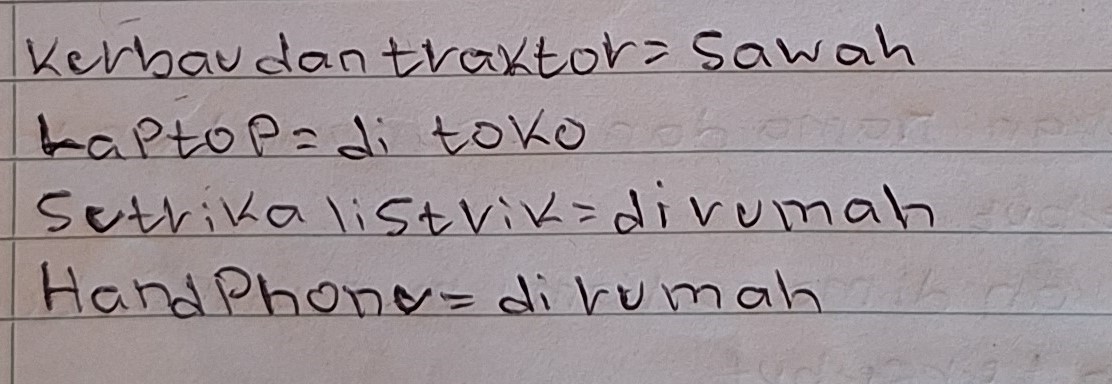 Kerbau dan traktor = Sawah
Laptop = di toko
Setrika listrik = di rumah
Handphone = di rumah